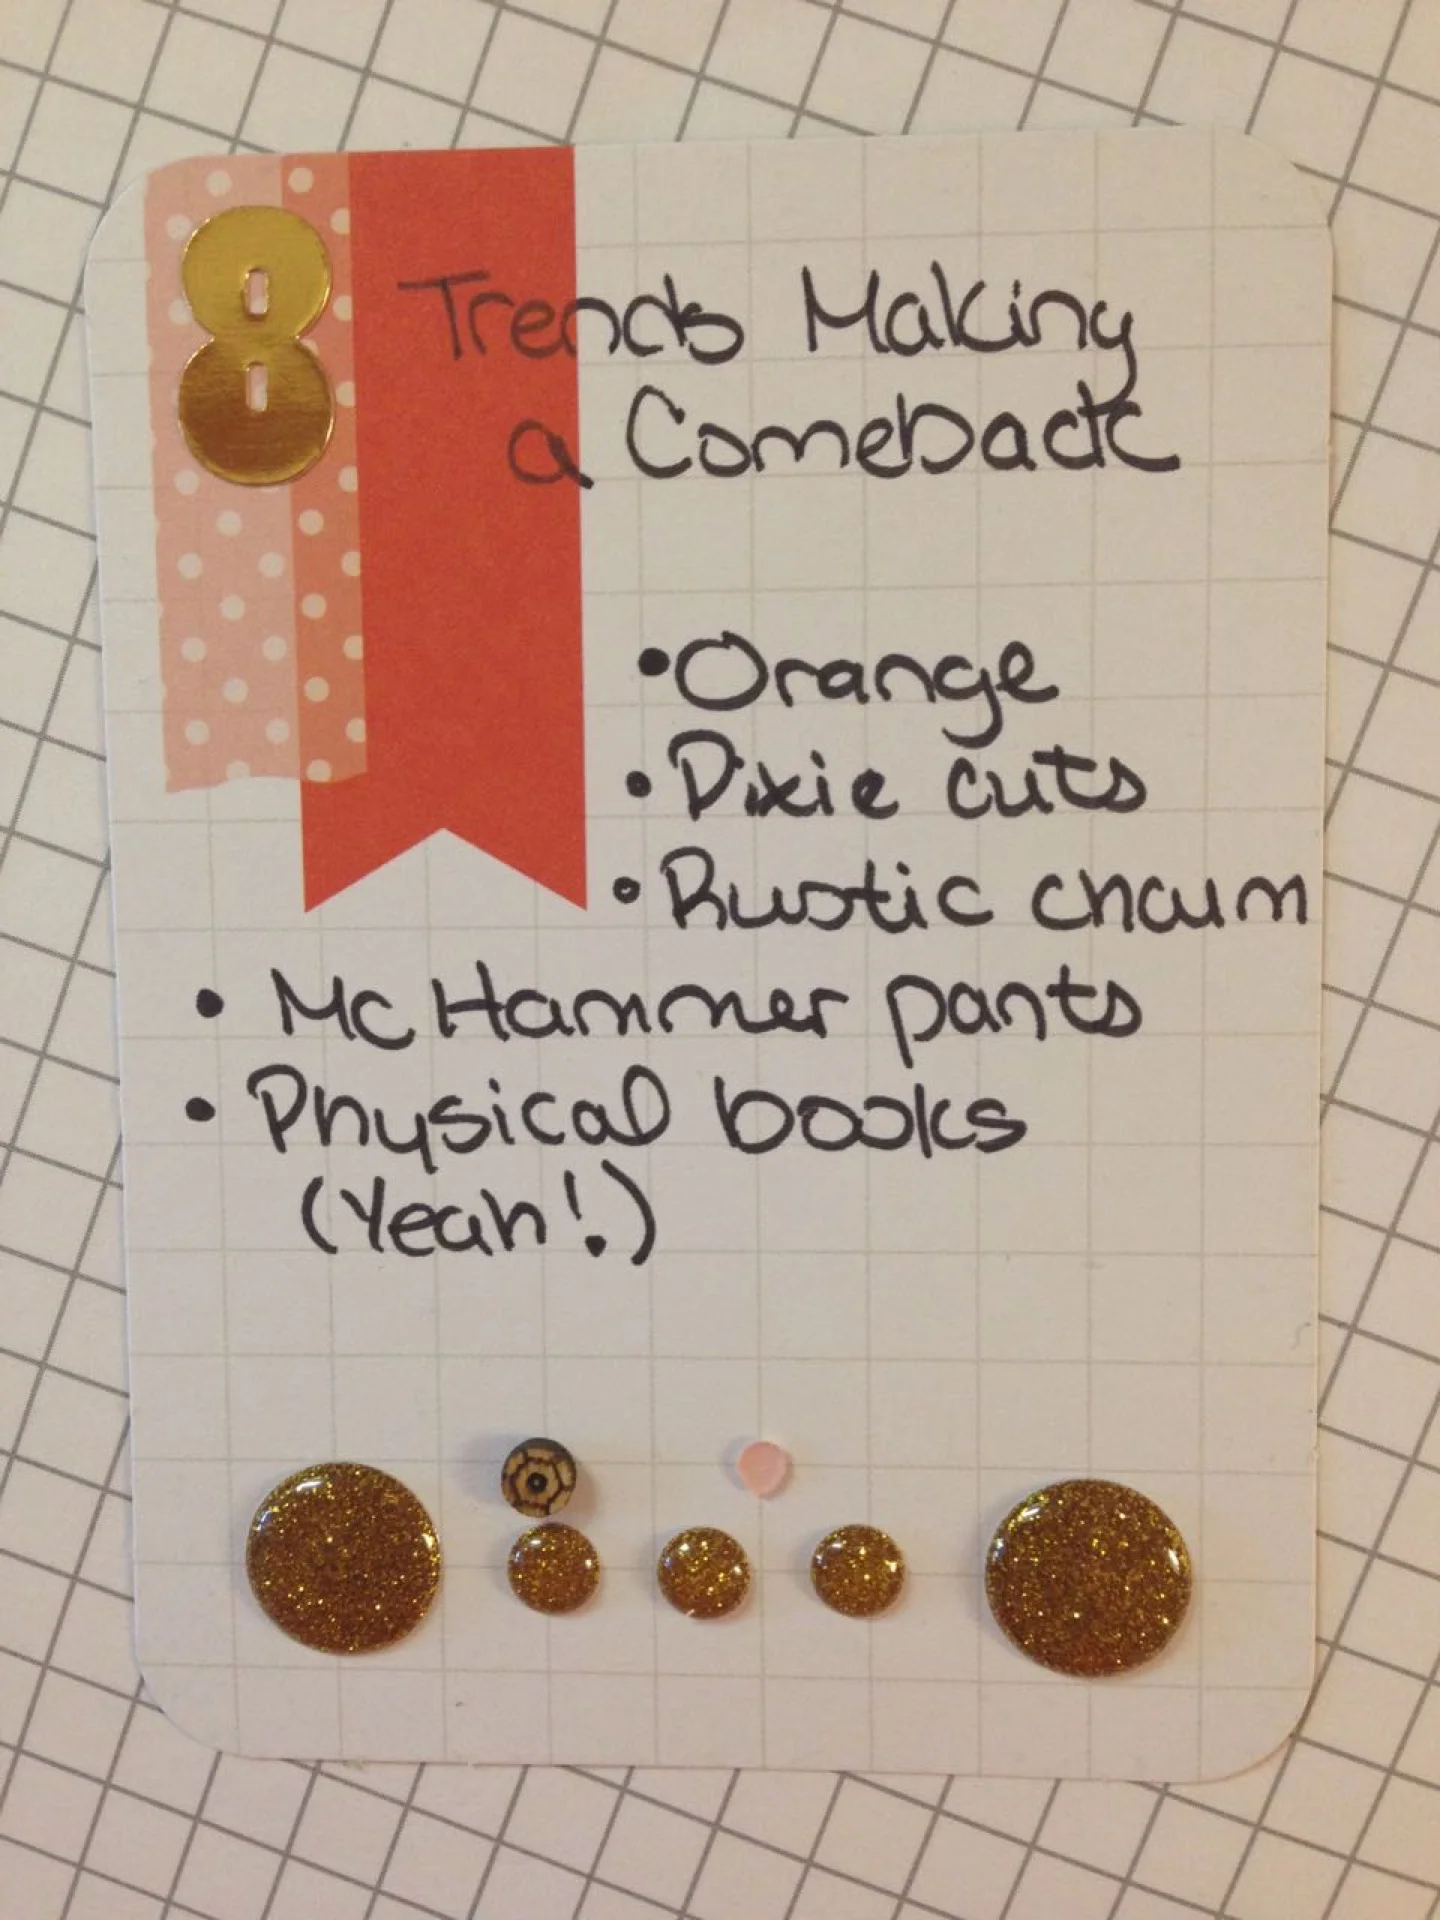 8
Trends Making
a Comeback
•Orange
• Dixie cuts
• Rustic charm
• Mc Hammer pants
• Physical books
(Yeah!)